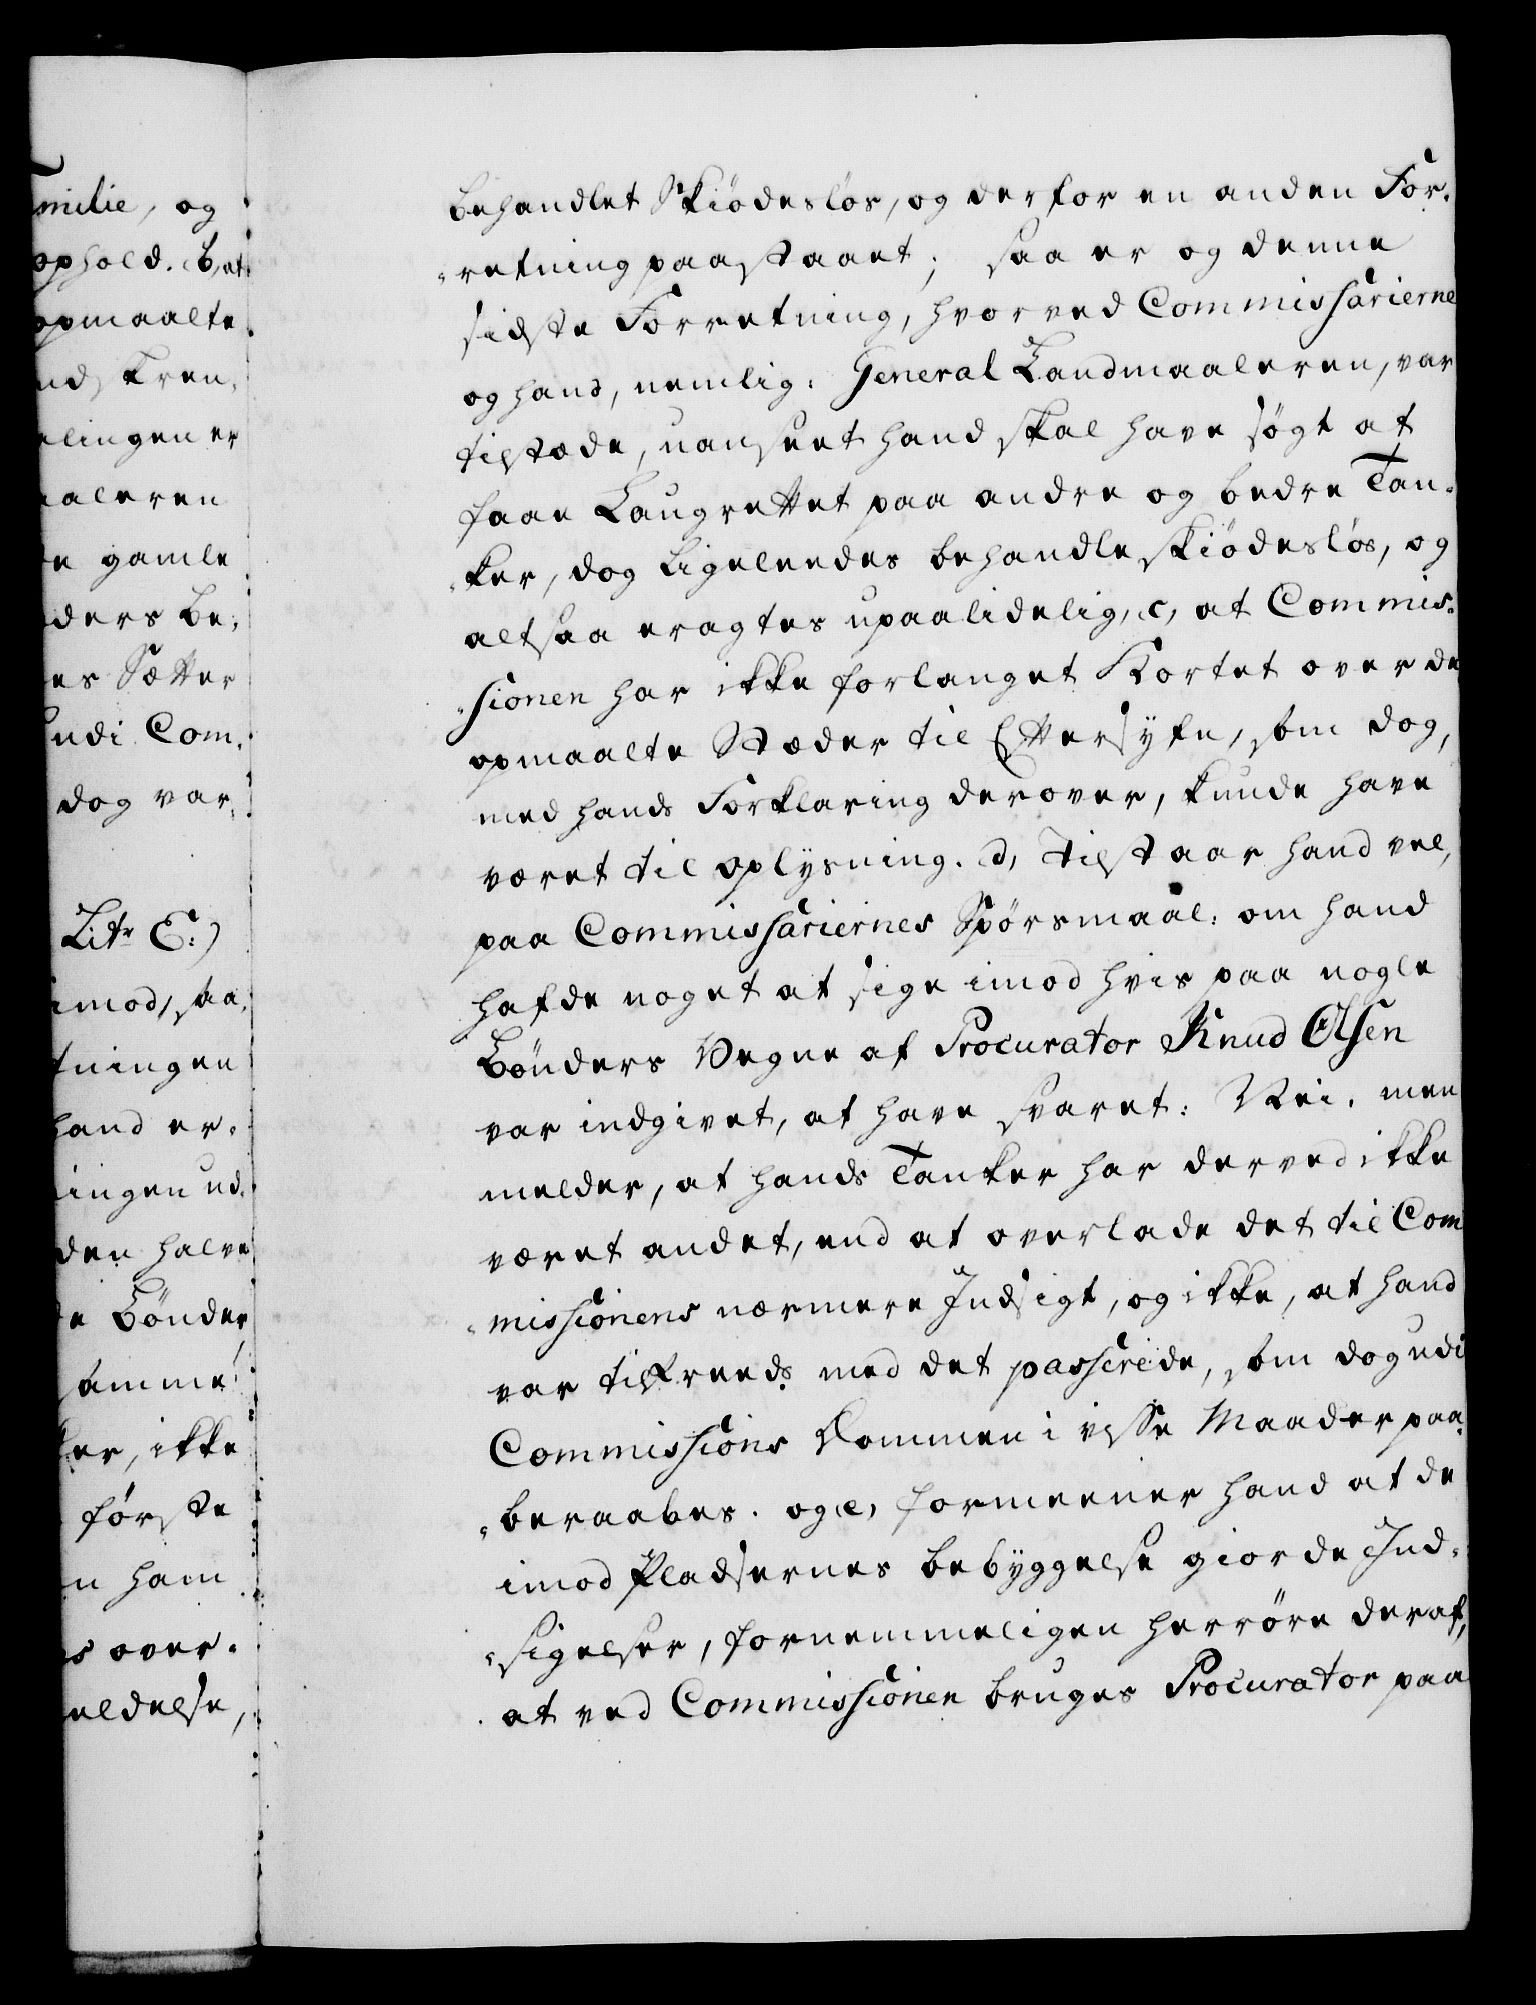 milie, og
ophold. b, at
opmaalte
elingen er
aleren
e gamle
ders be-
es Sætter
udi Com-
dog var
Litr E:)
imod, saa
tningen
hand er-
ingen ud-
den halve
e Bønder
samme
ker, ikke
første
n ham
s over-
eldelse,
behandlet Skiødesløs, og derfor en anden For-
retning paastaaet; saa er og denne
sidste Forretning, hvorved Commissarierne
og hans, nemlig: General Landmaaleren, var
tilstæde, uanseet hand skal have søgt at
faae Laugrettet paa andre og bedre Tan-
ker, dog ligeleedes behandle skiødesløs, og
altsaa eragtes upaalidelig, c, at Commis-
sionen har ikke forlanget Kortet over de
opmaalte Stæder til Eftersyfn, som dog,
med hands Forklaring derover, kunde have
været til oplysning. d, Tilstaar hand vel,
paa Commissariernes Spørsmaal: om hand
hafde noget at sige imod hvis paa nogle
Bønders Vegne af Procurator Knud Olsen
var indgivet, at have svaret: Nei. men
melder, at hands Tanker har derved ikke
været andet, end at overlade det til Com
missionens nærmere Indsigt, og ikke, at hand
var tilfreeds med det passerede, som dog udi
Commissions Dommen i visse Maader paa-
beraabes. og e, formeener hand at de
imod Pladsernes bebyggelse giorde Ind-
sigelser, fornemmeligen herrøre deraf,
at ved Commissionen bruges Procurator paa